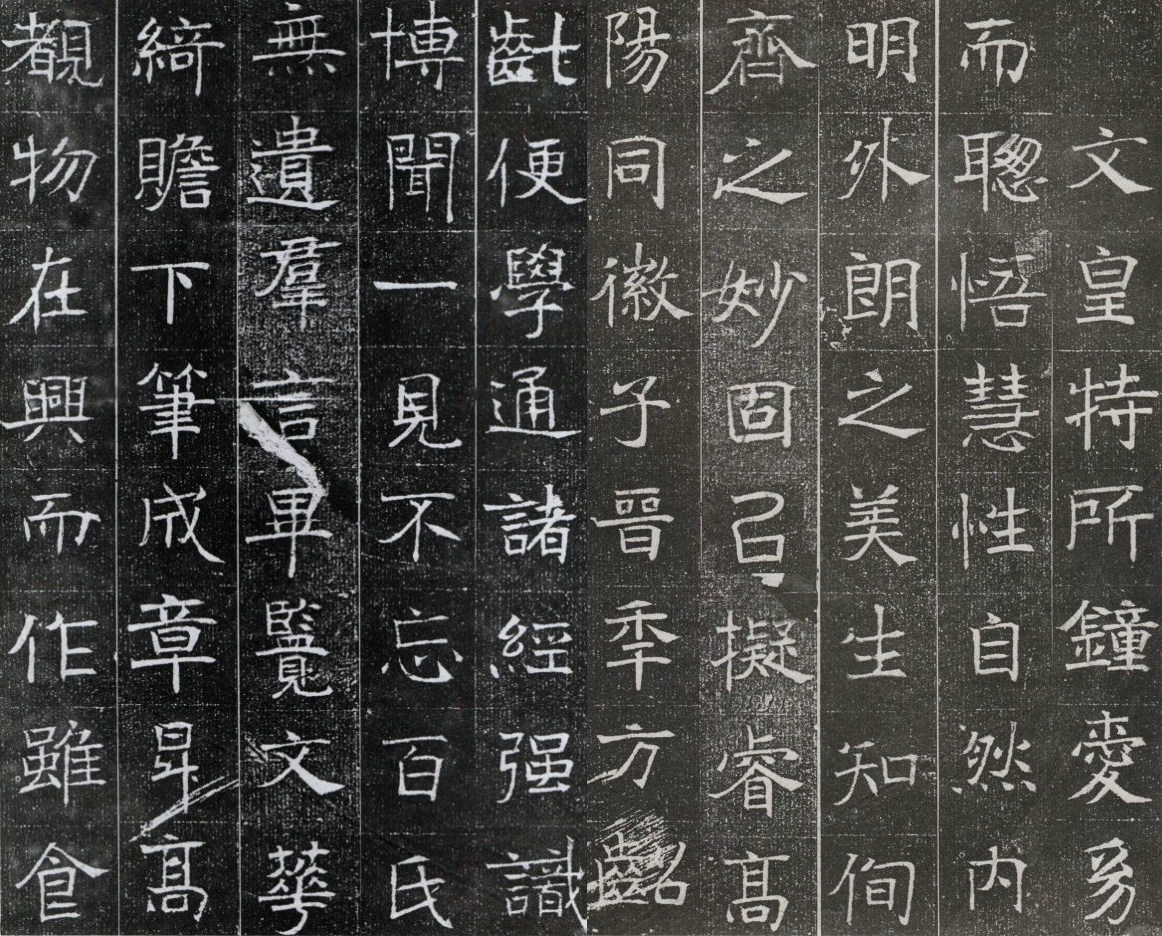 文皇特所鐘愛易
而聰悟慧性自然内
明外朗之美生知侚
齊之妙固㠯擬睿髙
陽同徽子晉秊方齠
齔便學通諸經强識
博聞一見不忘百氏
無遺羣言畢覽文華
綺贍下筆成章昇髙
覩物在興而作雖食